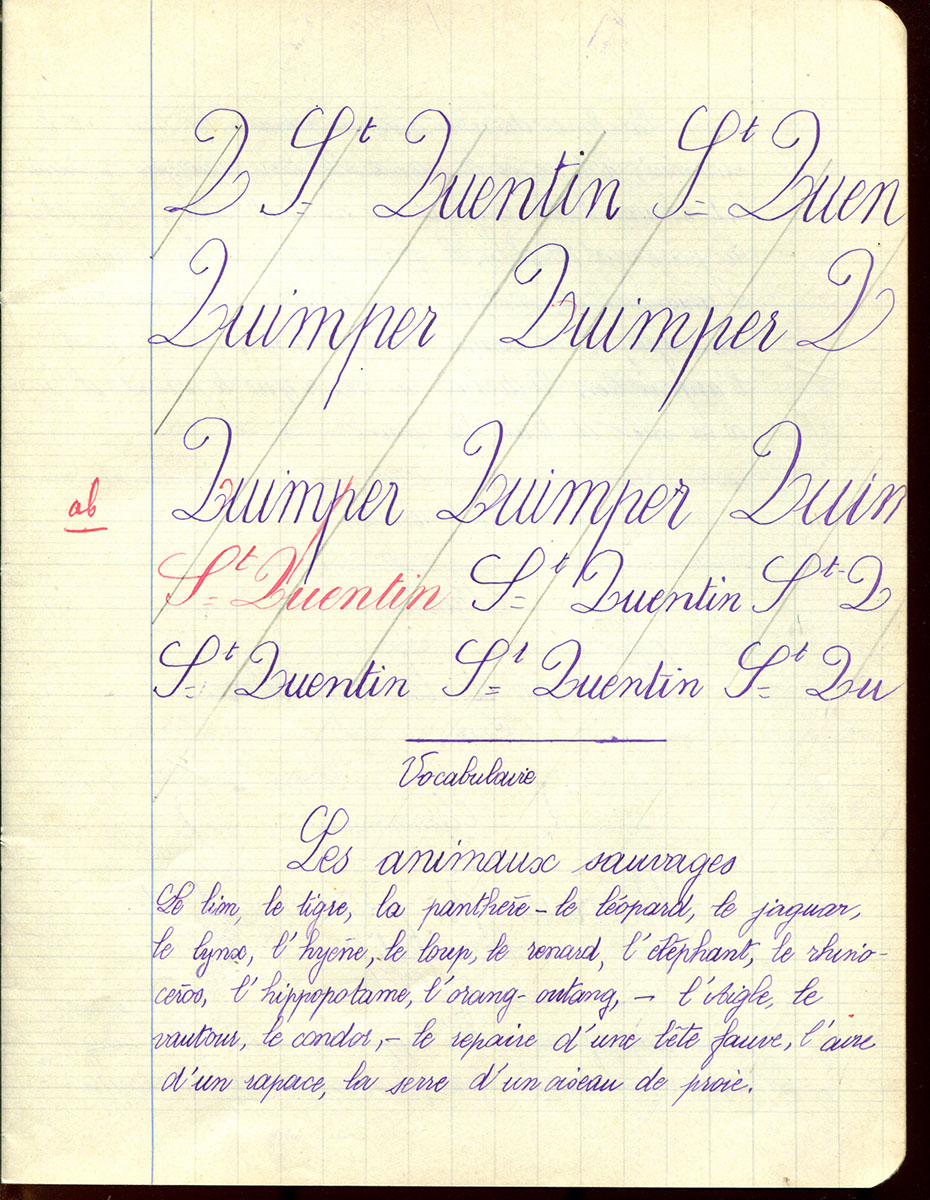 Q St Quentin St Quen
Quimper Quimper Q
ab
Quimper Quimper Quim
St Quentin St Quentin St Q
St Quentin St Quentin St Qu
Vocabulaire
Les animaux sauvages
Le lion, le tigre, la panthère – le léopard, le jaguar,
le lynx, l'hyène, le loup, le renard, l'éléphant, le rhino-
céros, l'hippopotame, l'orang-outang, – l'Aigle, le
vautour, le condor, – le repaire d'une bête fauve, l'aire
d'un rapace, la serre d'un oiseau de proie.